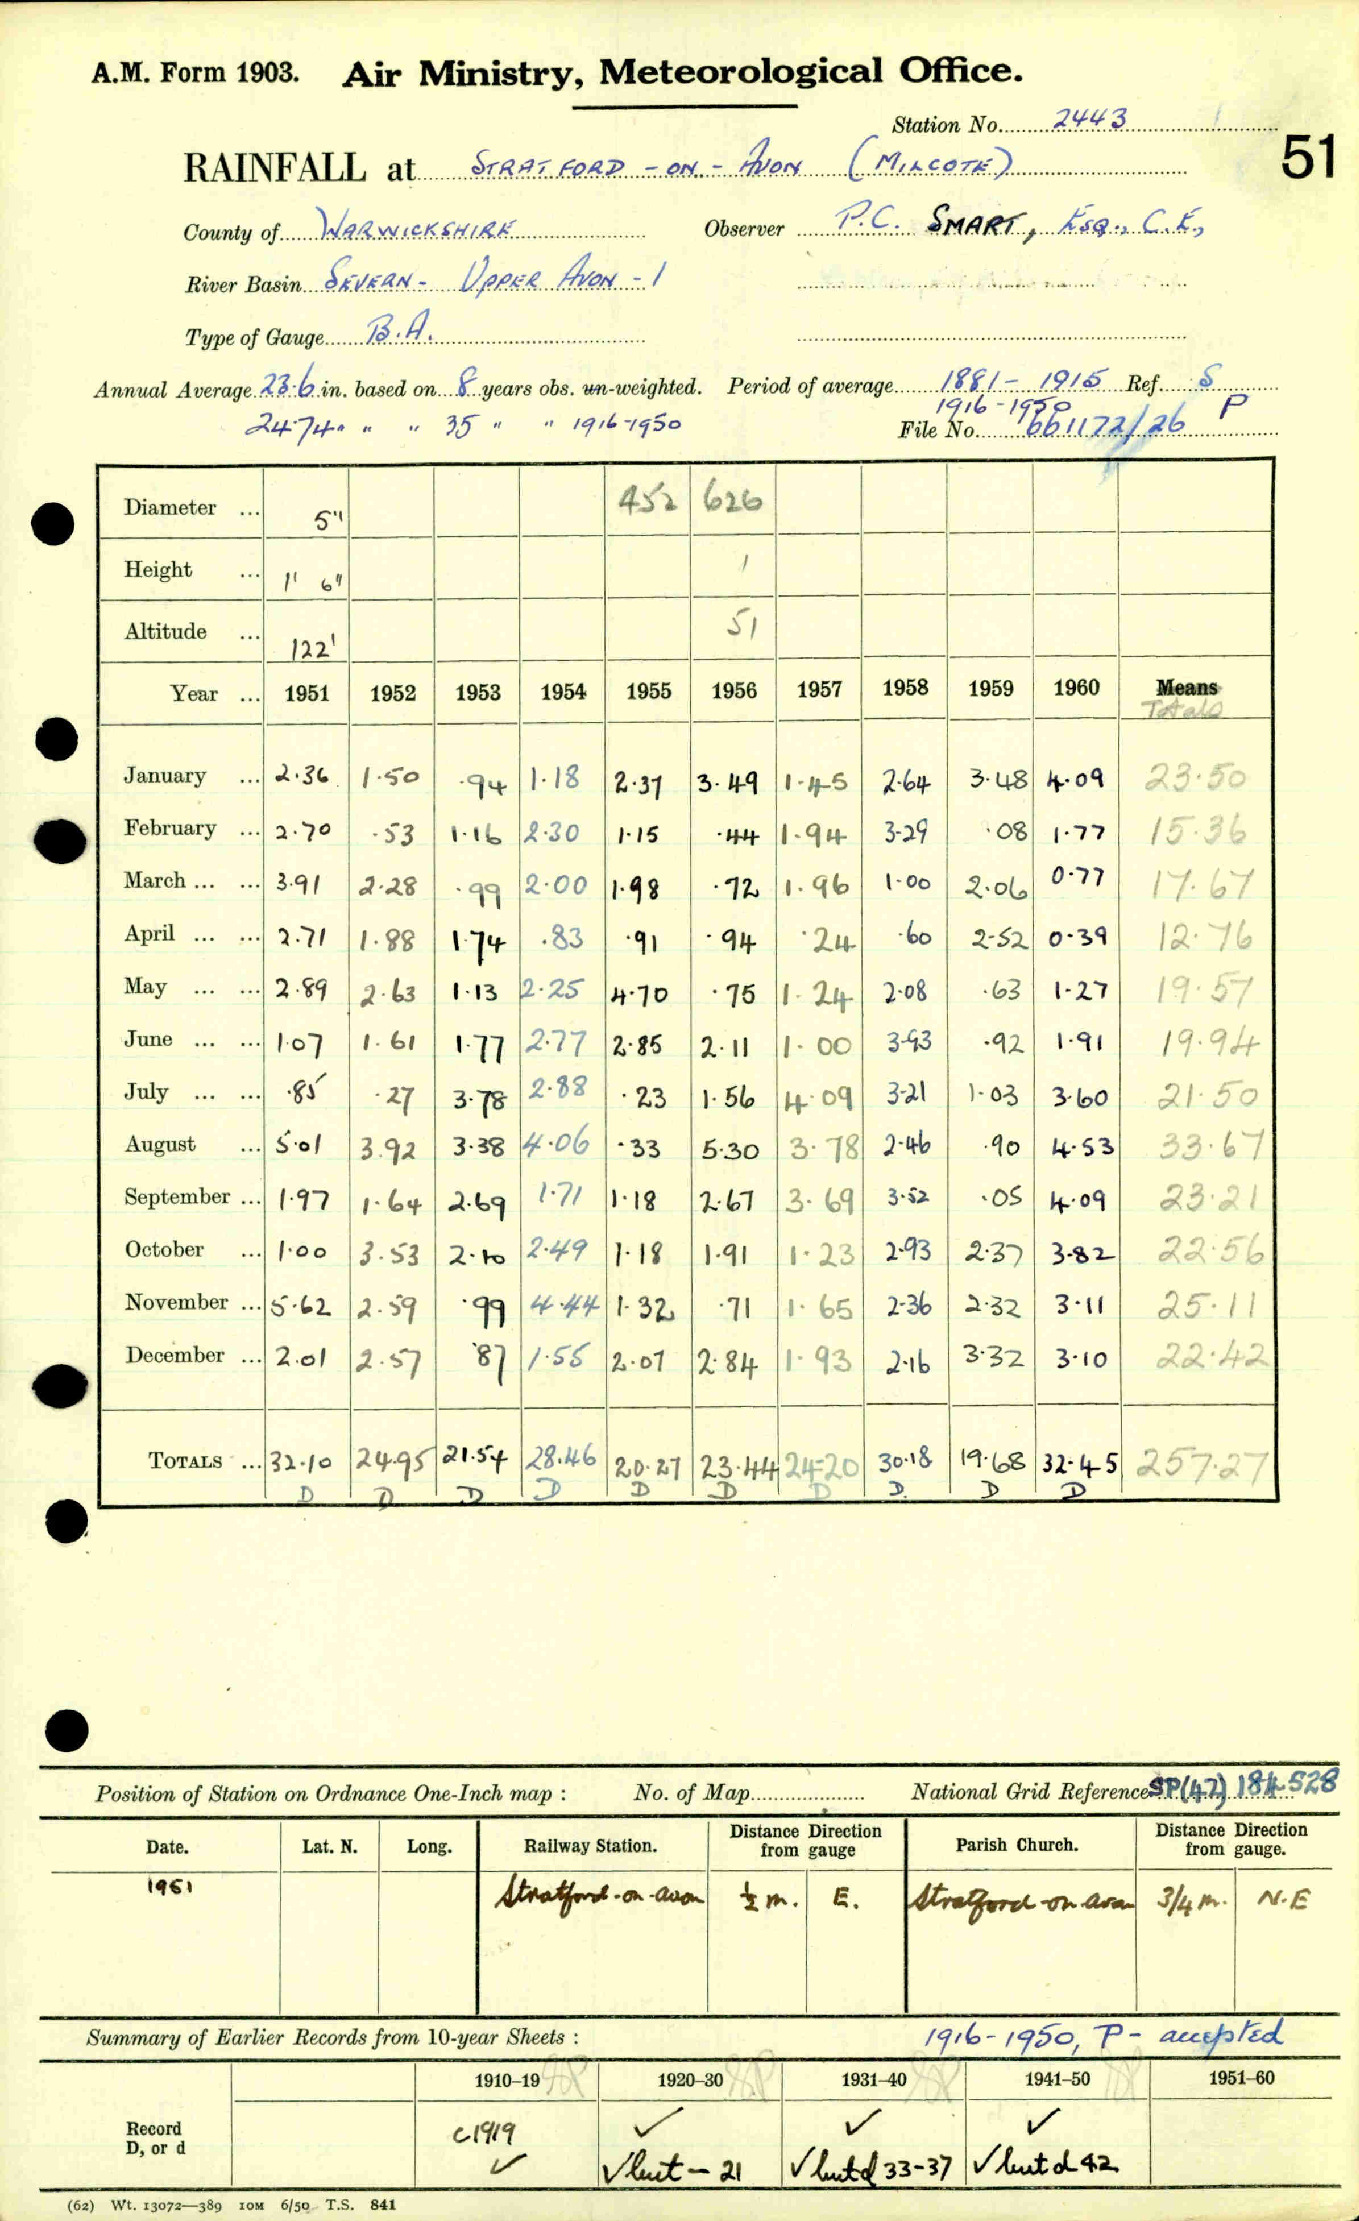 A.M. Form 1903. Air Ministry, Meteorological Office.
Station No. 2443
51
RAINFALL at STRATFORD - ON - AVON (MILCOTE)
County of WARWICKSHIRE Observer P.C. SMART, ESQ., C.E.,
River Basin SEVERN - UPPER AVON - 1
Type of Gauge B.A.
Annual Average 23.6 in. based on 8 years obs. un-weighted. Period of average 1881 - 1915 Ref. S
24.74" " " 35 " " 1916-1950 1916-1950 P
File No. 661172/26
Diameter ... 5" 452 626
Height ... 1' 6" 1
Altitude ... 122' 51
Year ... 1951 1952 1953 1954 1955 1956 1957 1958 1959 1960 Means
Totals
January ... 2.36 1.50 .94 1.18 2.37 3.49 1.45 2.64 3.48 4.09 23.50
February ... 2.70 .53 1.16 2.30 1.15 .44 1.94 3.29 .08 1.77 15.36
March ... ... 3.91 2.28 .99 2.00 1.98 .72 1.96 1.00 2.06 0.77 17.67
April ... ... 2.71 1.88 1.74 .83 .91 .94 .24 .60 2.52 0.39 12.76
May ... ... 2.89 2.63 1.13 2.25 4.70 .75 1.24 2.08 .63 1.27 19.57
June ... ... 1.07 1.61 1.77 2.77 2.85 2.11 1.00 3.93 .92 1.91 19.94
July ... ... .85 .27 3.78 2.88 .23 1.56 4.09 3.21 1.03 3.60 21.50
August ... 5.01 3.92 3.38 4.06 .33 5.30 3.78 2.46 .90 4.53 33.67
September ... 1.97 1.64 2.69 1.71 1.18 2.67 3.69 3.52 .05 4.09 23.21
October ... 1.00 3.53 2.10 2.49 1.18 1.91 1.23 2.93 2.37 3.82 22.56
November ... 5.62 2.59 .99 4.44 1.32 .71 1.65 2.36 2.32 3.11 25.11
December ... 2.01 2.57 .87 1.55 2.07 2.84 1.93 2.16 3.32 3.10 22.42
TOTALS ... 32.10 24.95 21.54 28.46 20.27 23.44 24.20 30.18 19.68 32.45 257.27
D D D D D D D D D D
Position of Station on Ordnance One-Inch map : No. of Map National Grid Reference SP(42) 184528
Date. Lat. N. Long. Railway Station. Distance from gauge Direction Parish Church. Distance from gauge. Direction
1951 Stratford-on-avon 1/2 m. E. Stratford-on-avon 3/4 m. N.E
Summary of Earlier Records from 10-year Sheets : 1916-1950, P - accepted
1910–19 1920–30 1931–40 1941–50 1951–60
Record D, or d c1919 ✓ ✓ ✓
✓ ✓ but - 21 ✓ but d 33-37 ✓ but d 42
(62) Wt. 13072—389 10M 6/50 T.S. 841